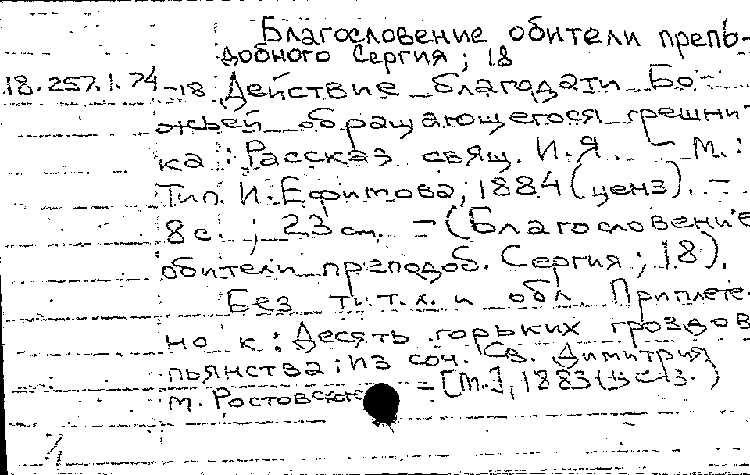 Благословение обители препо-
добного Сергия ; 18
18.257.1.74-18 Действие благодати Бо-
жьей обращающегося грешни-
ка : Рассказ свящ. И.Я. - М. :
Тип. И. Ефимова, 1884 (ценз). -
8 с. ; 23 см. - (Благословение
обители преподоб. Сергия ; 18).
Без тит. л. и обл. Приплете-
но к : Десять горьких гроздов
пьянства : из соч. Св. Димитрия
м. Ростовского - [М.], 1883 (ценз.)